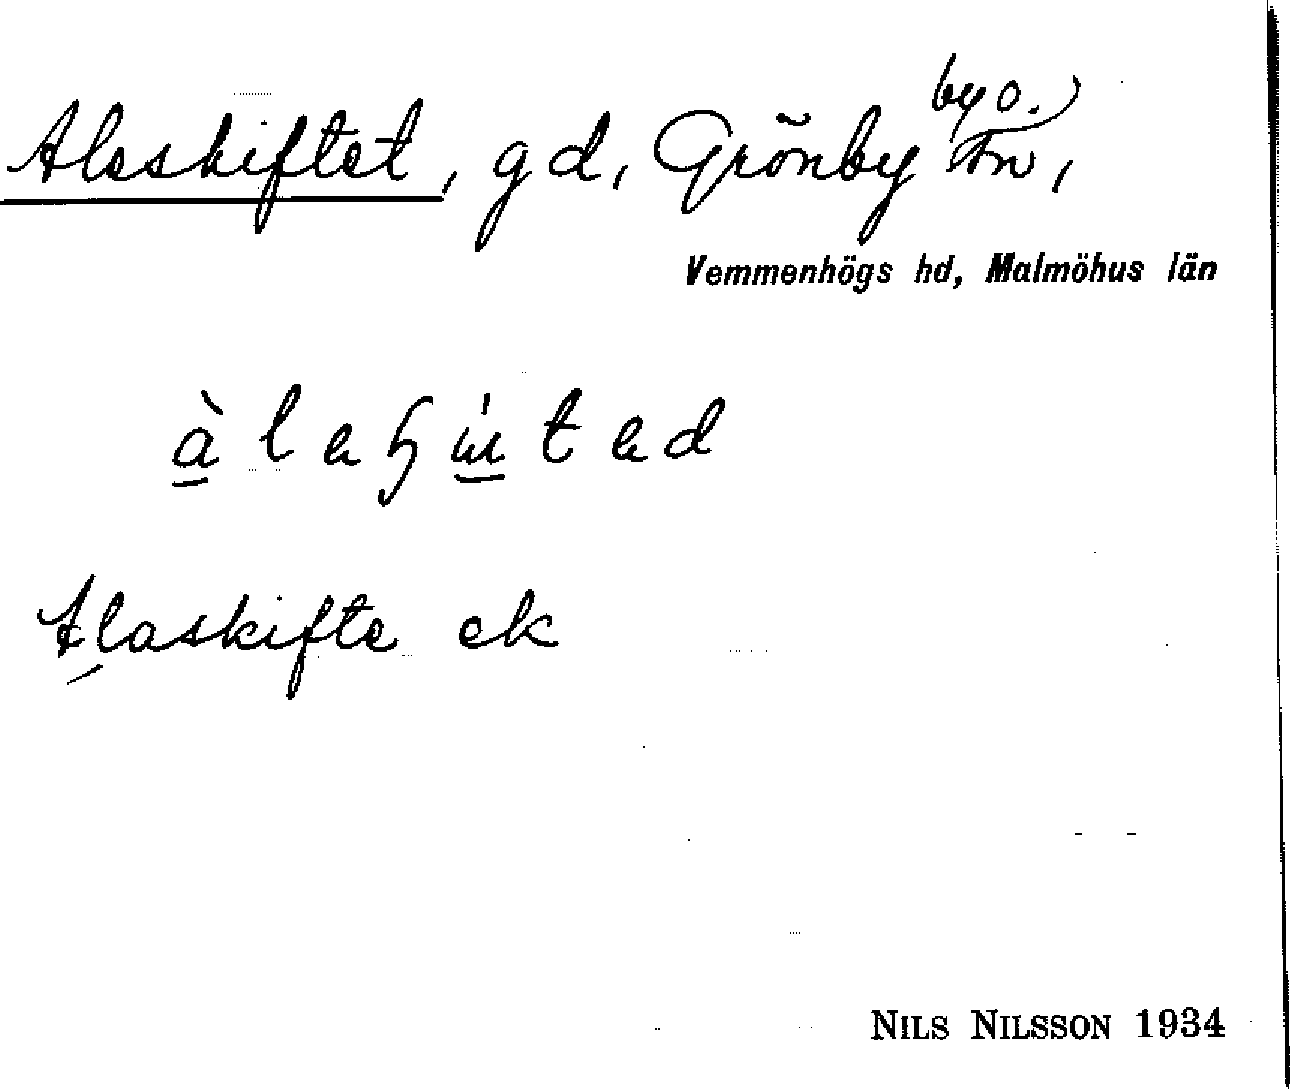 Aleskiftet, gd, Grönby by o. sn,
Vemmenhögs hd, Malmöhus län
Alaskifte ek
NILS NILSSON 1934